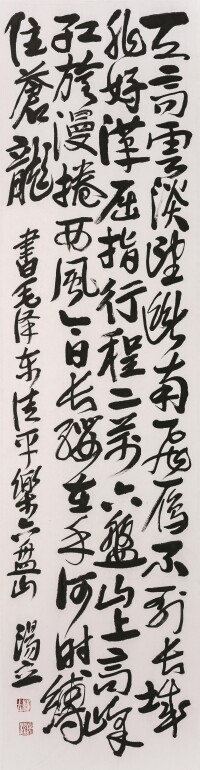 天高雲淡望断南飛雁不到长城
非好漢屈指行程二萬六盤山上高峰
红旗漫捲西风今日长缨在手何时缚
住蒼龍
書毛泽东清平樂六盘山 湯立